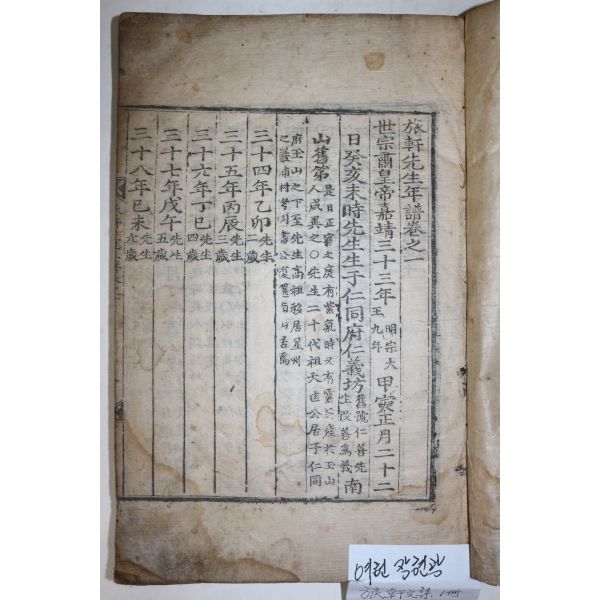 旅軒先生年譜卷之一
世宗肅皇帝嘉靖三十三年 明宗大王九年 甲寅正月二十二
日癸亥未時先生生于仁同府仁義坊 舊號仁善先生改善爲義 南
山舊第 是日正寢之廣有紫氣時又有靈芝産於玉山
人咸異之○先生二十代祖太直公居于仁同
府玉山之下至先生高祖移居星州
三十四年乙卯 先生二歲
三十五年丙辰 先生三歲
三十六年丁巳 先生四歲
三十七年戊午 先生五歲
三十八年己未 先生六歲
여헌 장현광